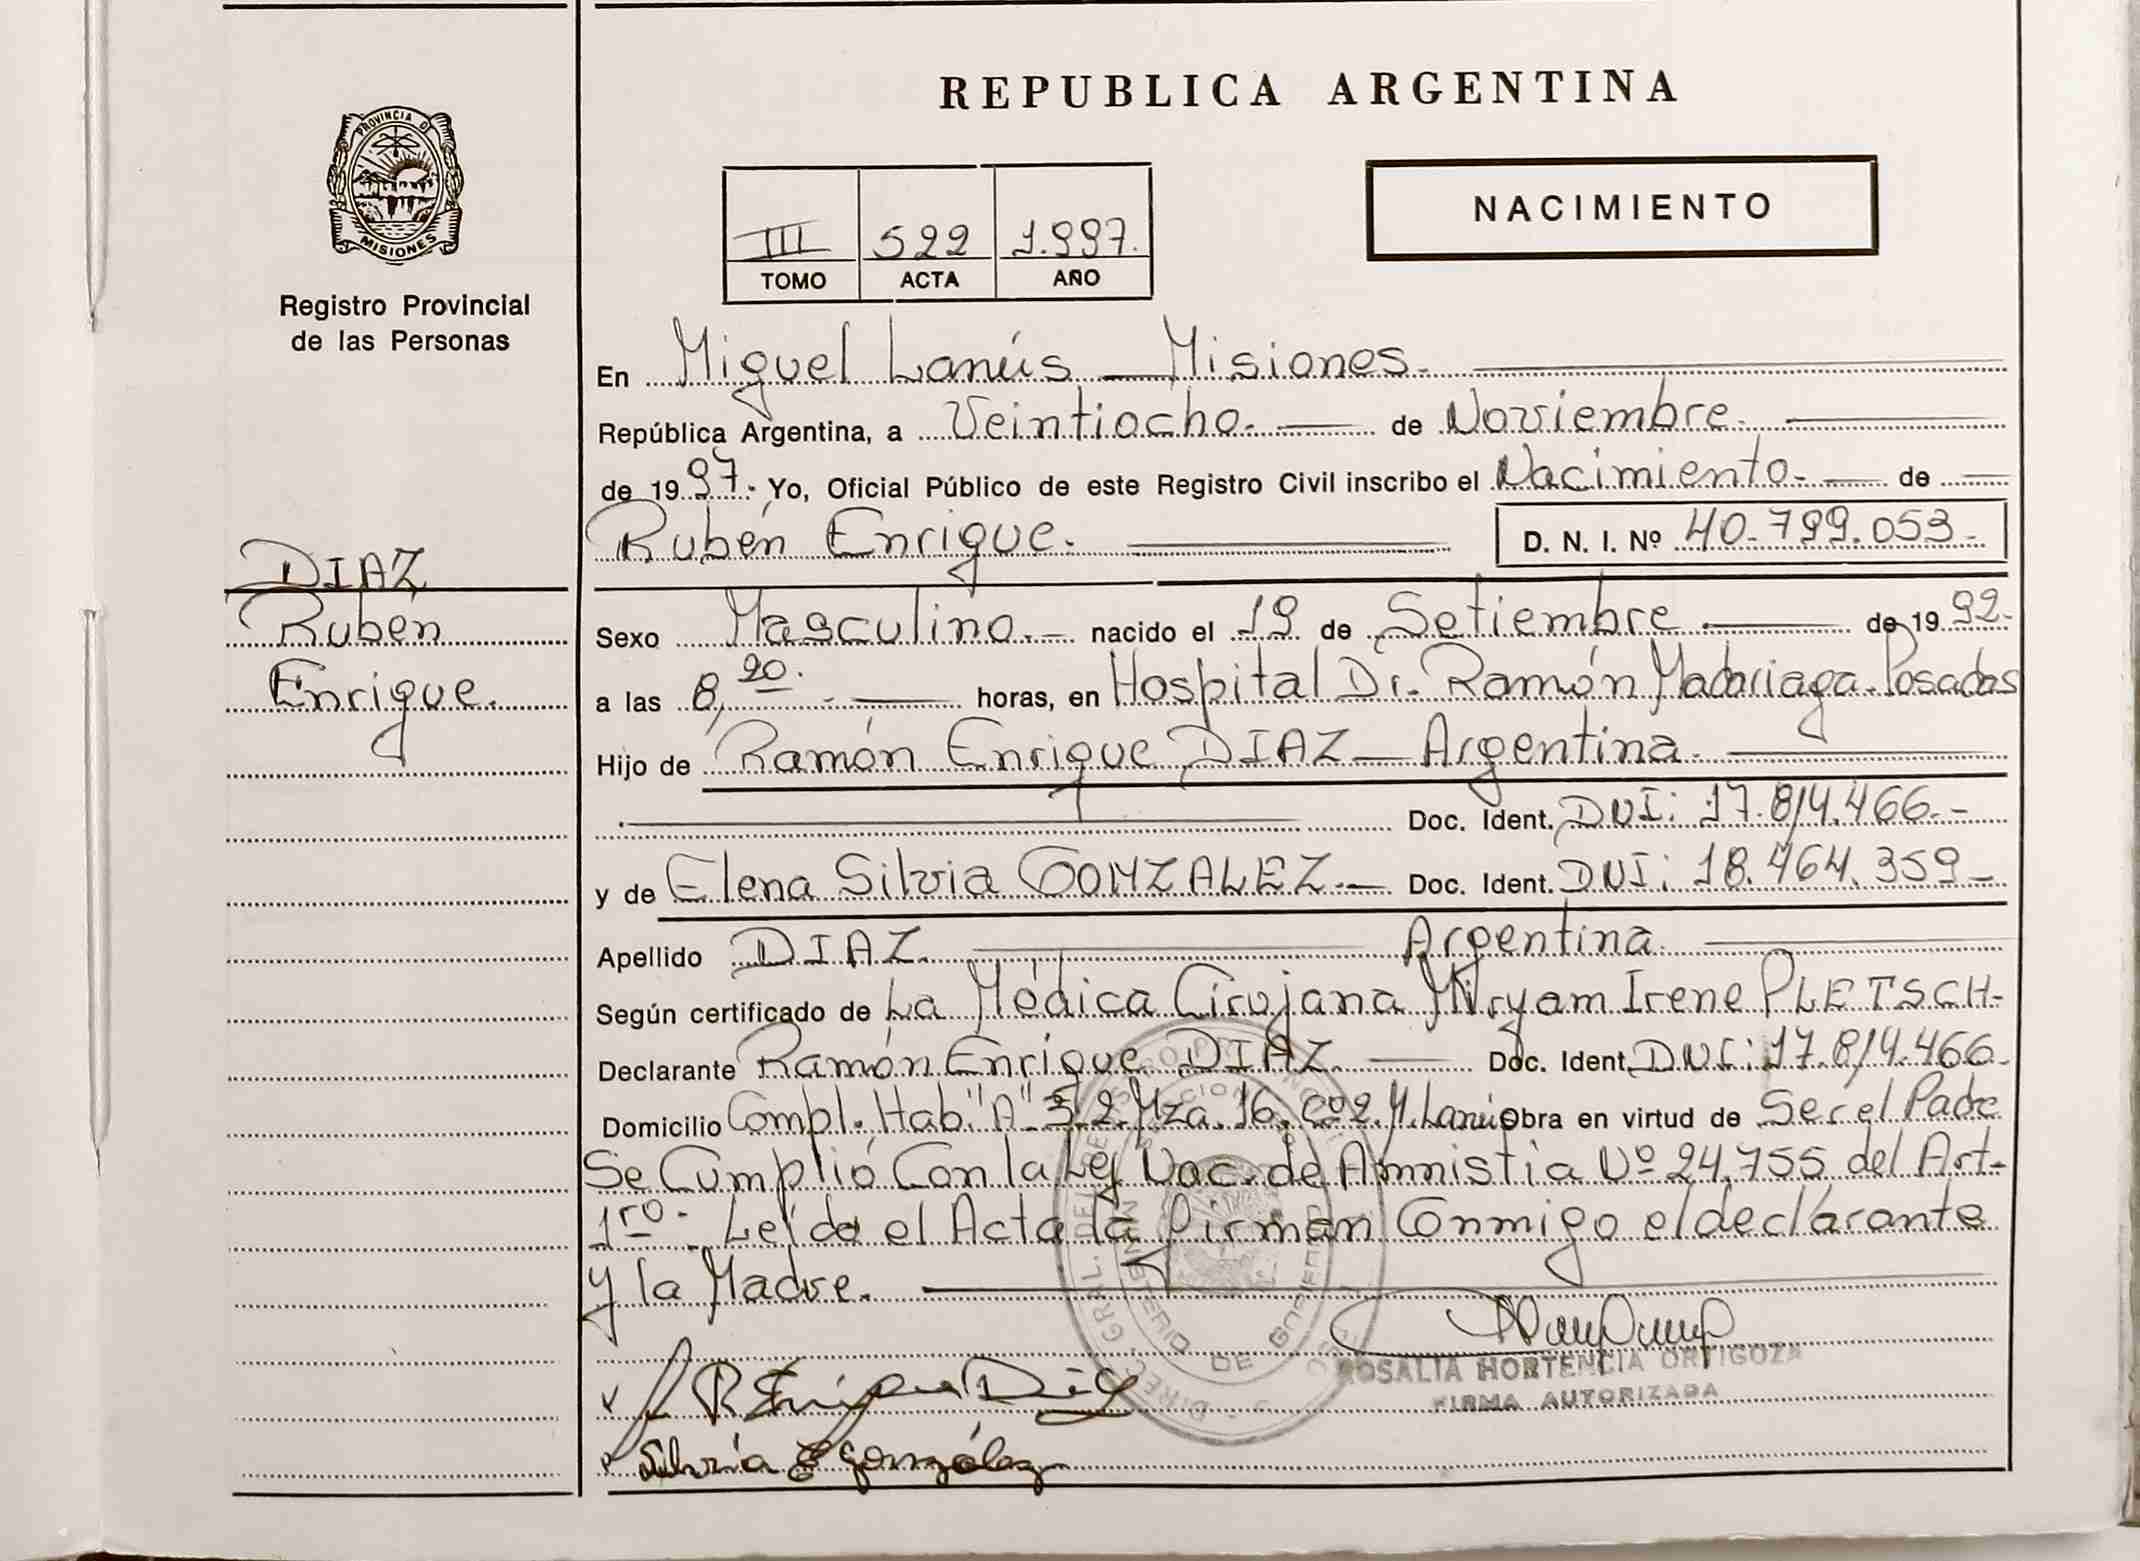 REPUBLICA ARGENTINA
PROVINCIA DE
MISIONES
Registro Provincial
de las Personas
NACIMIENTO
III 522 1.997.
TOMO ACTA AÑO
En Miguel Lanús — Misiones.
República Argentina, a Veintiocho. de Noviembre.
de 1997. Yo, Oficial Público de este Registro Civil inscribo el Nacimiento. de
Rubén Enrique. D. N. I. Nº 40.799.053.
DIAZ
Rubén
Enrique.
Sexo Masculino. nacido el 19 de Setiembre de 1992.
a las 8,20. horas, en Hospital Dr. Ramón Madariaga. Posadas
Hijo de Ramón Enrique DIAZ — Argentina.
Doc. Ident. DNI: 17.814.466.-
y de Elena Silvia GONZALEZ.- Doc. Ident. DNI: 18.464.359-
Apellido DIAZ. Argentina.
Según certificado de La Médica Cirujana Miryam Irene PLETSCH-
Declarante Ramón Enrique DIAZ. Doc. Ident. DNI: 17.814.466.
Domicilio Compl. Hab. "A" 3.2. Mza. 16. Cº2. M. Lanús Obra en virtud de Ser el Padre
Se Cumplió Con la Ley Nac. de Amnistia Nº 24.755 del Art-
1ro. Leída el Acta la firman Conmigo el declarante
y la Madre.
ROSALIA HORTENCIA ORTIGOZA
FIRMA AUTORIZADA
R Enrique Diaz
Silvia E González